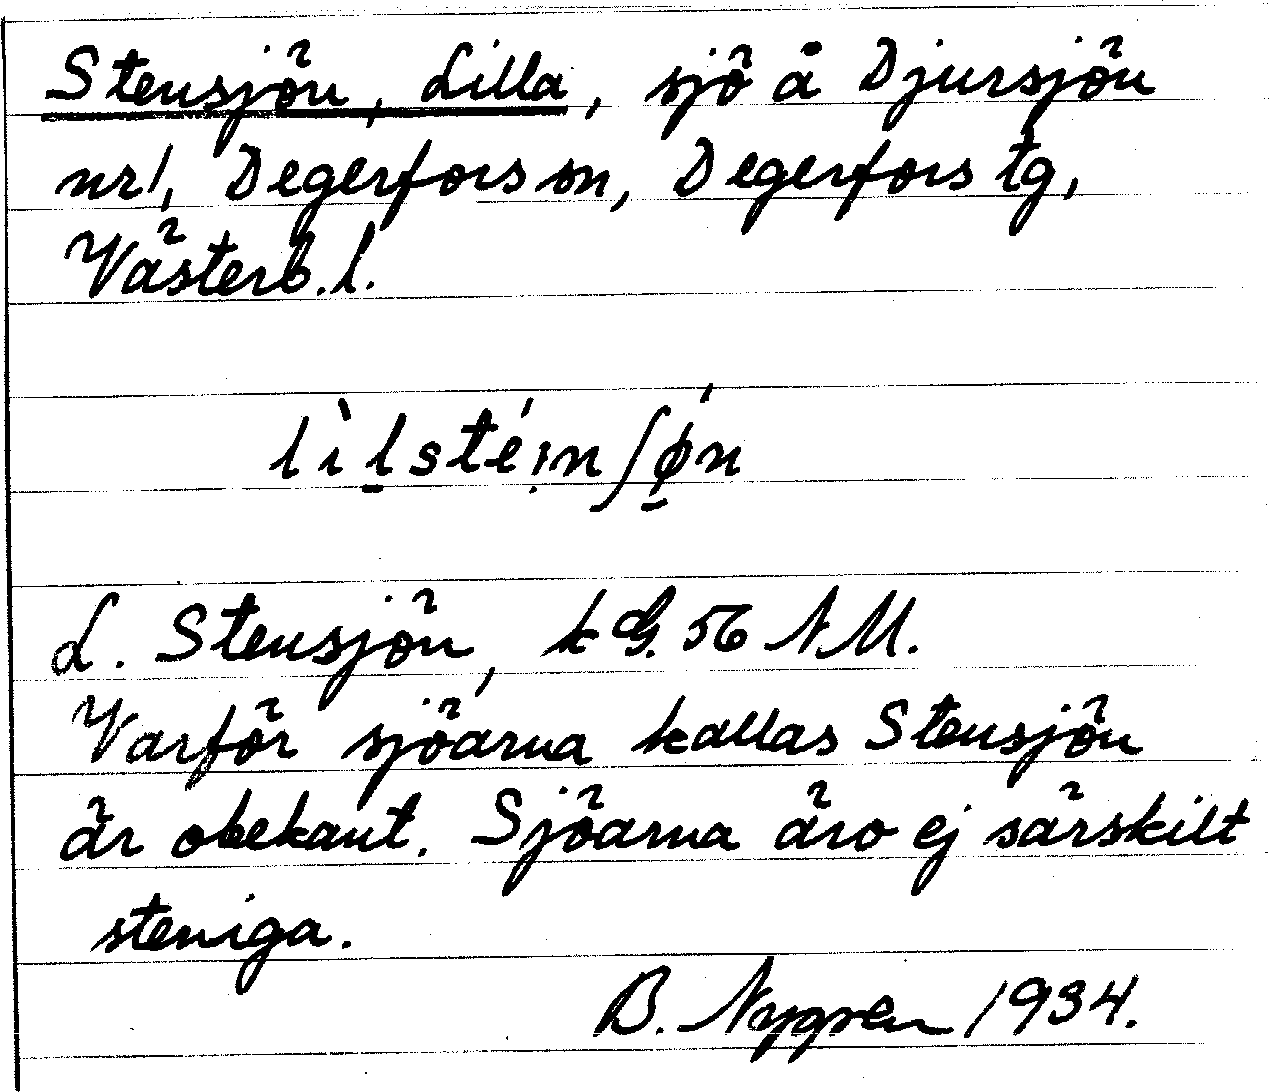 Stensjön, Lilla, sjö å Djursjön
nr 1, Degerfors sn, Degerfors tg,
Västerb. l.
L. Stensjön, k G. 56 N M.
Varför sjöarna kallas Stensjön
är obekant. Sjöarna äro ej särskilt
steniga.
B. Nygren 1934.